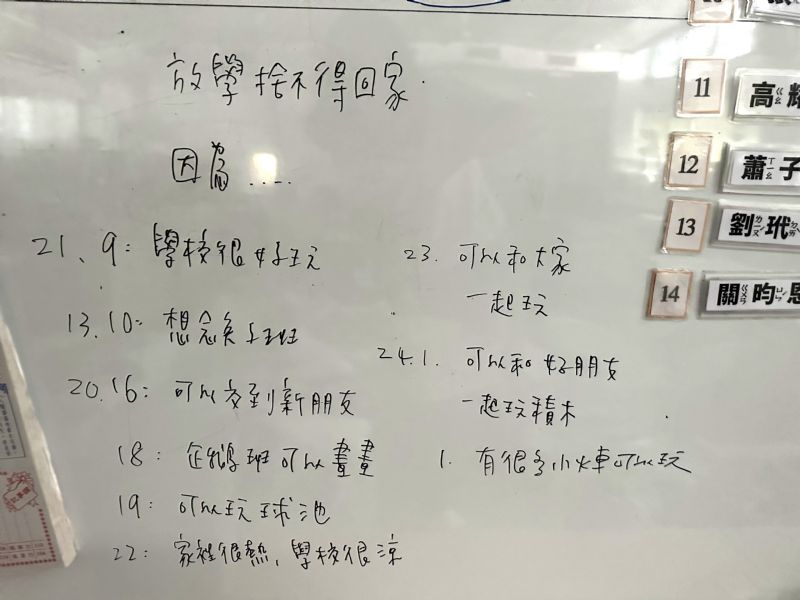 放學捨不得回家.
因為....
21、9: 學校很好玩
13.10: 想念兔子班
20.16: 可以交到新朋友
18: 企鵝班可以畫畫
19: 可以玩球池
22: 家裡很熱,學校很涼
23. 可以和大家
一起玩
24.1. 可以和好朋友
一起玩積木
1. 有很多小火車可以玩
11 高 ㄍㄠ 耀
12 蕭 ㄒㄧㄠ 子
13 劉 ㄌㄧㄡˊ 玳 ㄉㄞˋ
14 關 ㄍㄨㄢ 昀 ㄩㄣˊ 恩